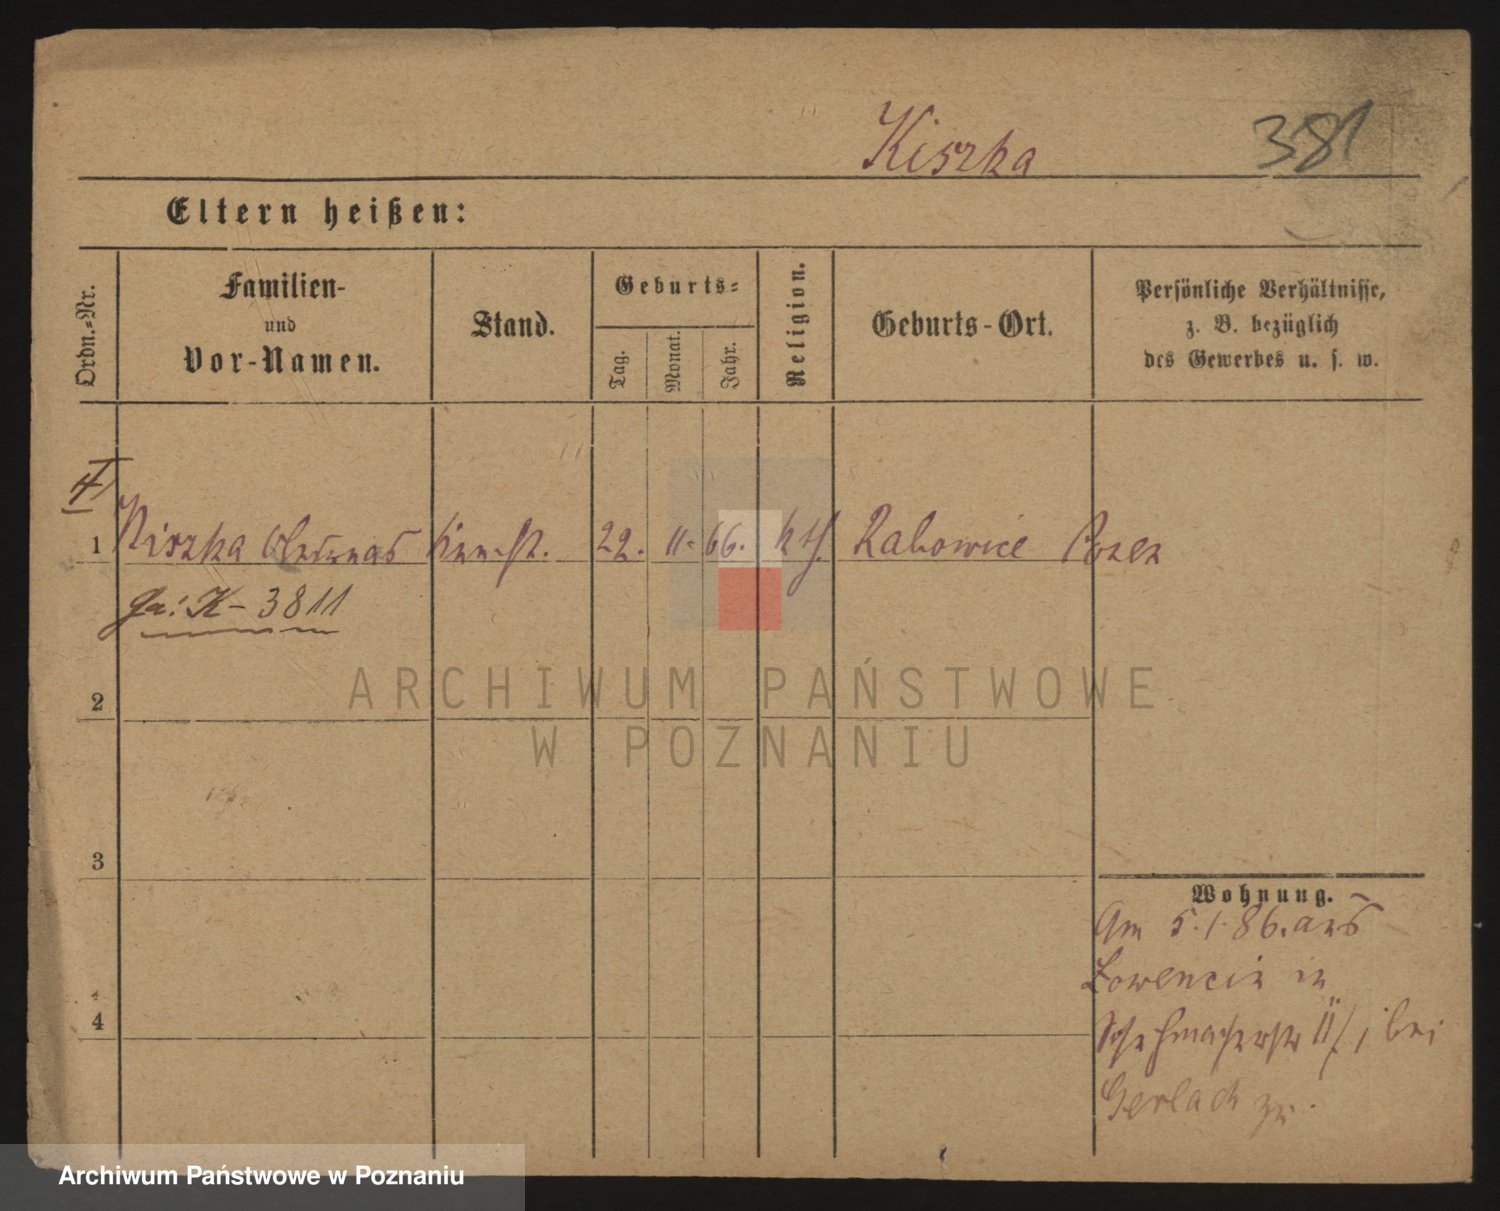 Kiszka 381
Eltern heißen:
Ordn.-Nr.
Familien-
und
Vor-Namen.
Stand.
Geburts-
Tag.
Monat.
Jahr.
Religion.
Geburts-Ort.
Persönliche Verhältnisse,
z. B. bezüglich
des Gewerbes u. s. w.
1 Kiszka 22. 11. 66. kth. Rabowice Posen
K-3811
2
3
4
Wohnung.
Am 5.1.86. aus
in
Schuhmacherstr 11/ bei
Gerlach zu.
ARCHIWUM PAŃSTWOWE
W POZNANIU
Archiwum Państwowe w Poznaniu